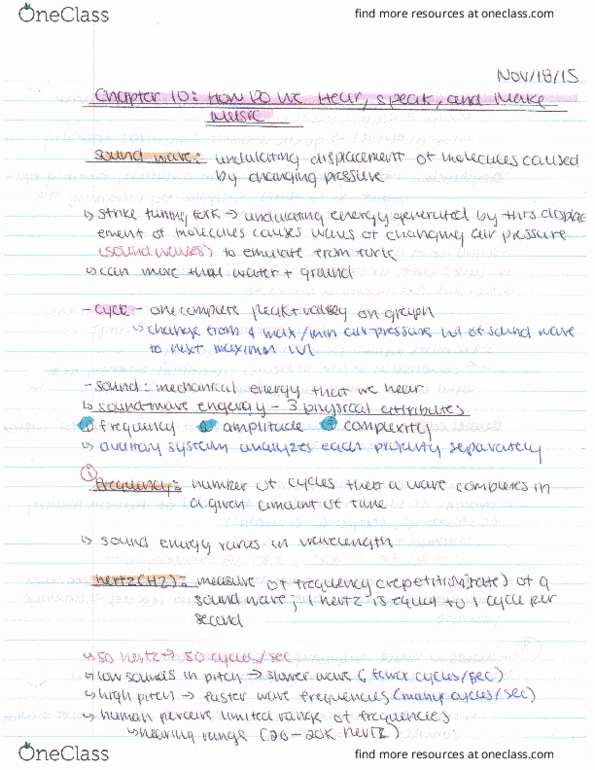 OneClass
find more resources at oneclass.com
Nov/18/15
Chapter 10: How Do We Hear, Speak, and Make
Music
sound wave: undulating displacement of molecules caused
by changing pressure
↳ strike tuning fork → undulating energy generated by this displac
ement of molecules causes waves of changing air pressure
(sound waves) to emanate from fork
↳ can move thru water + ground
- cycle - one complete peak + valley on graph
↳ change from 1 max/min air-pressure lvl of sound wave
to next maximum lvl
- sound: mechanical energy that we hear
↳ sound-wave energy - 3 physical attributes
① frequency ② amplitude ③ complexity
↳ auditory system analyzes each property separately
①
frequency: number of cycles that a wave completes in
a given amount of time
↳ sound energy varies in wavelength
hertz (HZ): measure of frequency (repetition rate) of a
sound wave; 1 hertz is equal to 1 cycle per
second
↳ 50 hertz → 50 cycles/sec
↳ low sounds in pitch → slower wave (fewer cycles/sec)
↳ high pitch → faster wave frequencies (many cycles/sec)
↳ human perceive limited range of frequencies
↳ hearing range (20-20K hertz)
OneClass
find more resources at oneclass.com